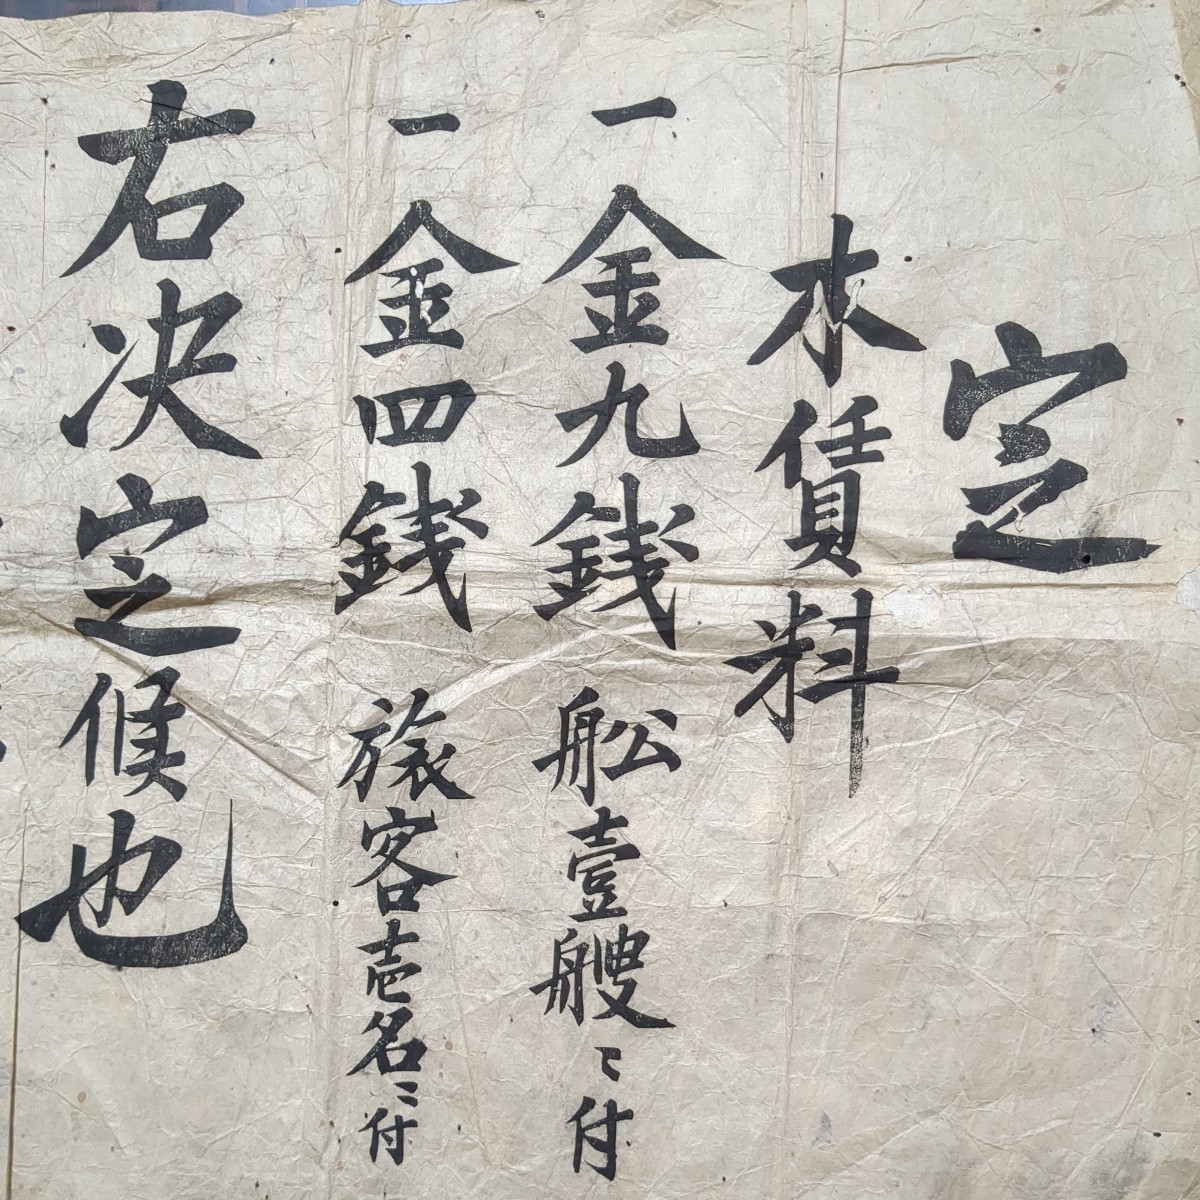 定
木賃料
一金九銭　舩壹艘ニ付
一金四銭　旅客壱名ニ付
右决定之候也